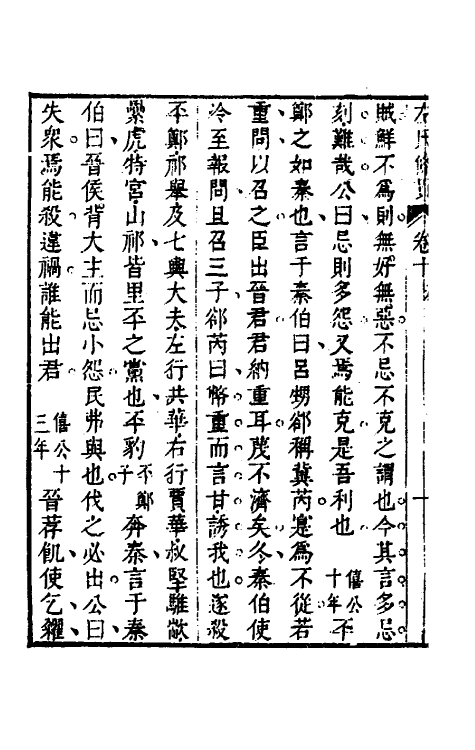 左氏條貫 卷十 十
賊鮮不為則無好無惡不忌不克之謂也今其言多忌
刻難哉公曰忌則多怨又焉能克是吾利也僖公十年丕
鄭之如秦也言于秦伯曰呂甥郤稱冀芮寔為不從若
重問以召之臣出晉君君納重耳蔑不濟矣冬秦伯使
冷至報問且召三子郤芮曰幣重而言甘誘我也遂殺
丕鄭祁舉及七輿大夫左行共華右行賈華叔堅騅歂
纍虎特宮山祁皆里丕之黨也丕豹丕鄭子奔秦言于秦
伯曰晉侯背大主而忌小怨民弗與也伐之必出公曰
失衆焉能殺違禍誰能出君僖公十三年晉荐飢使乞糴